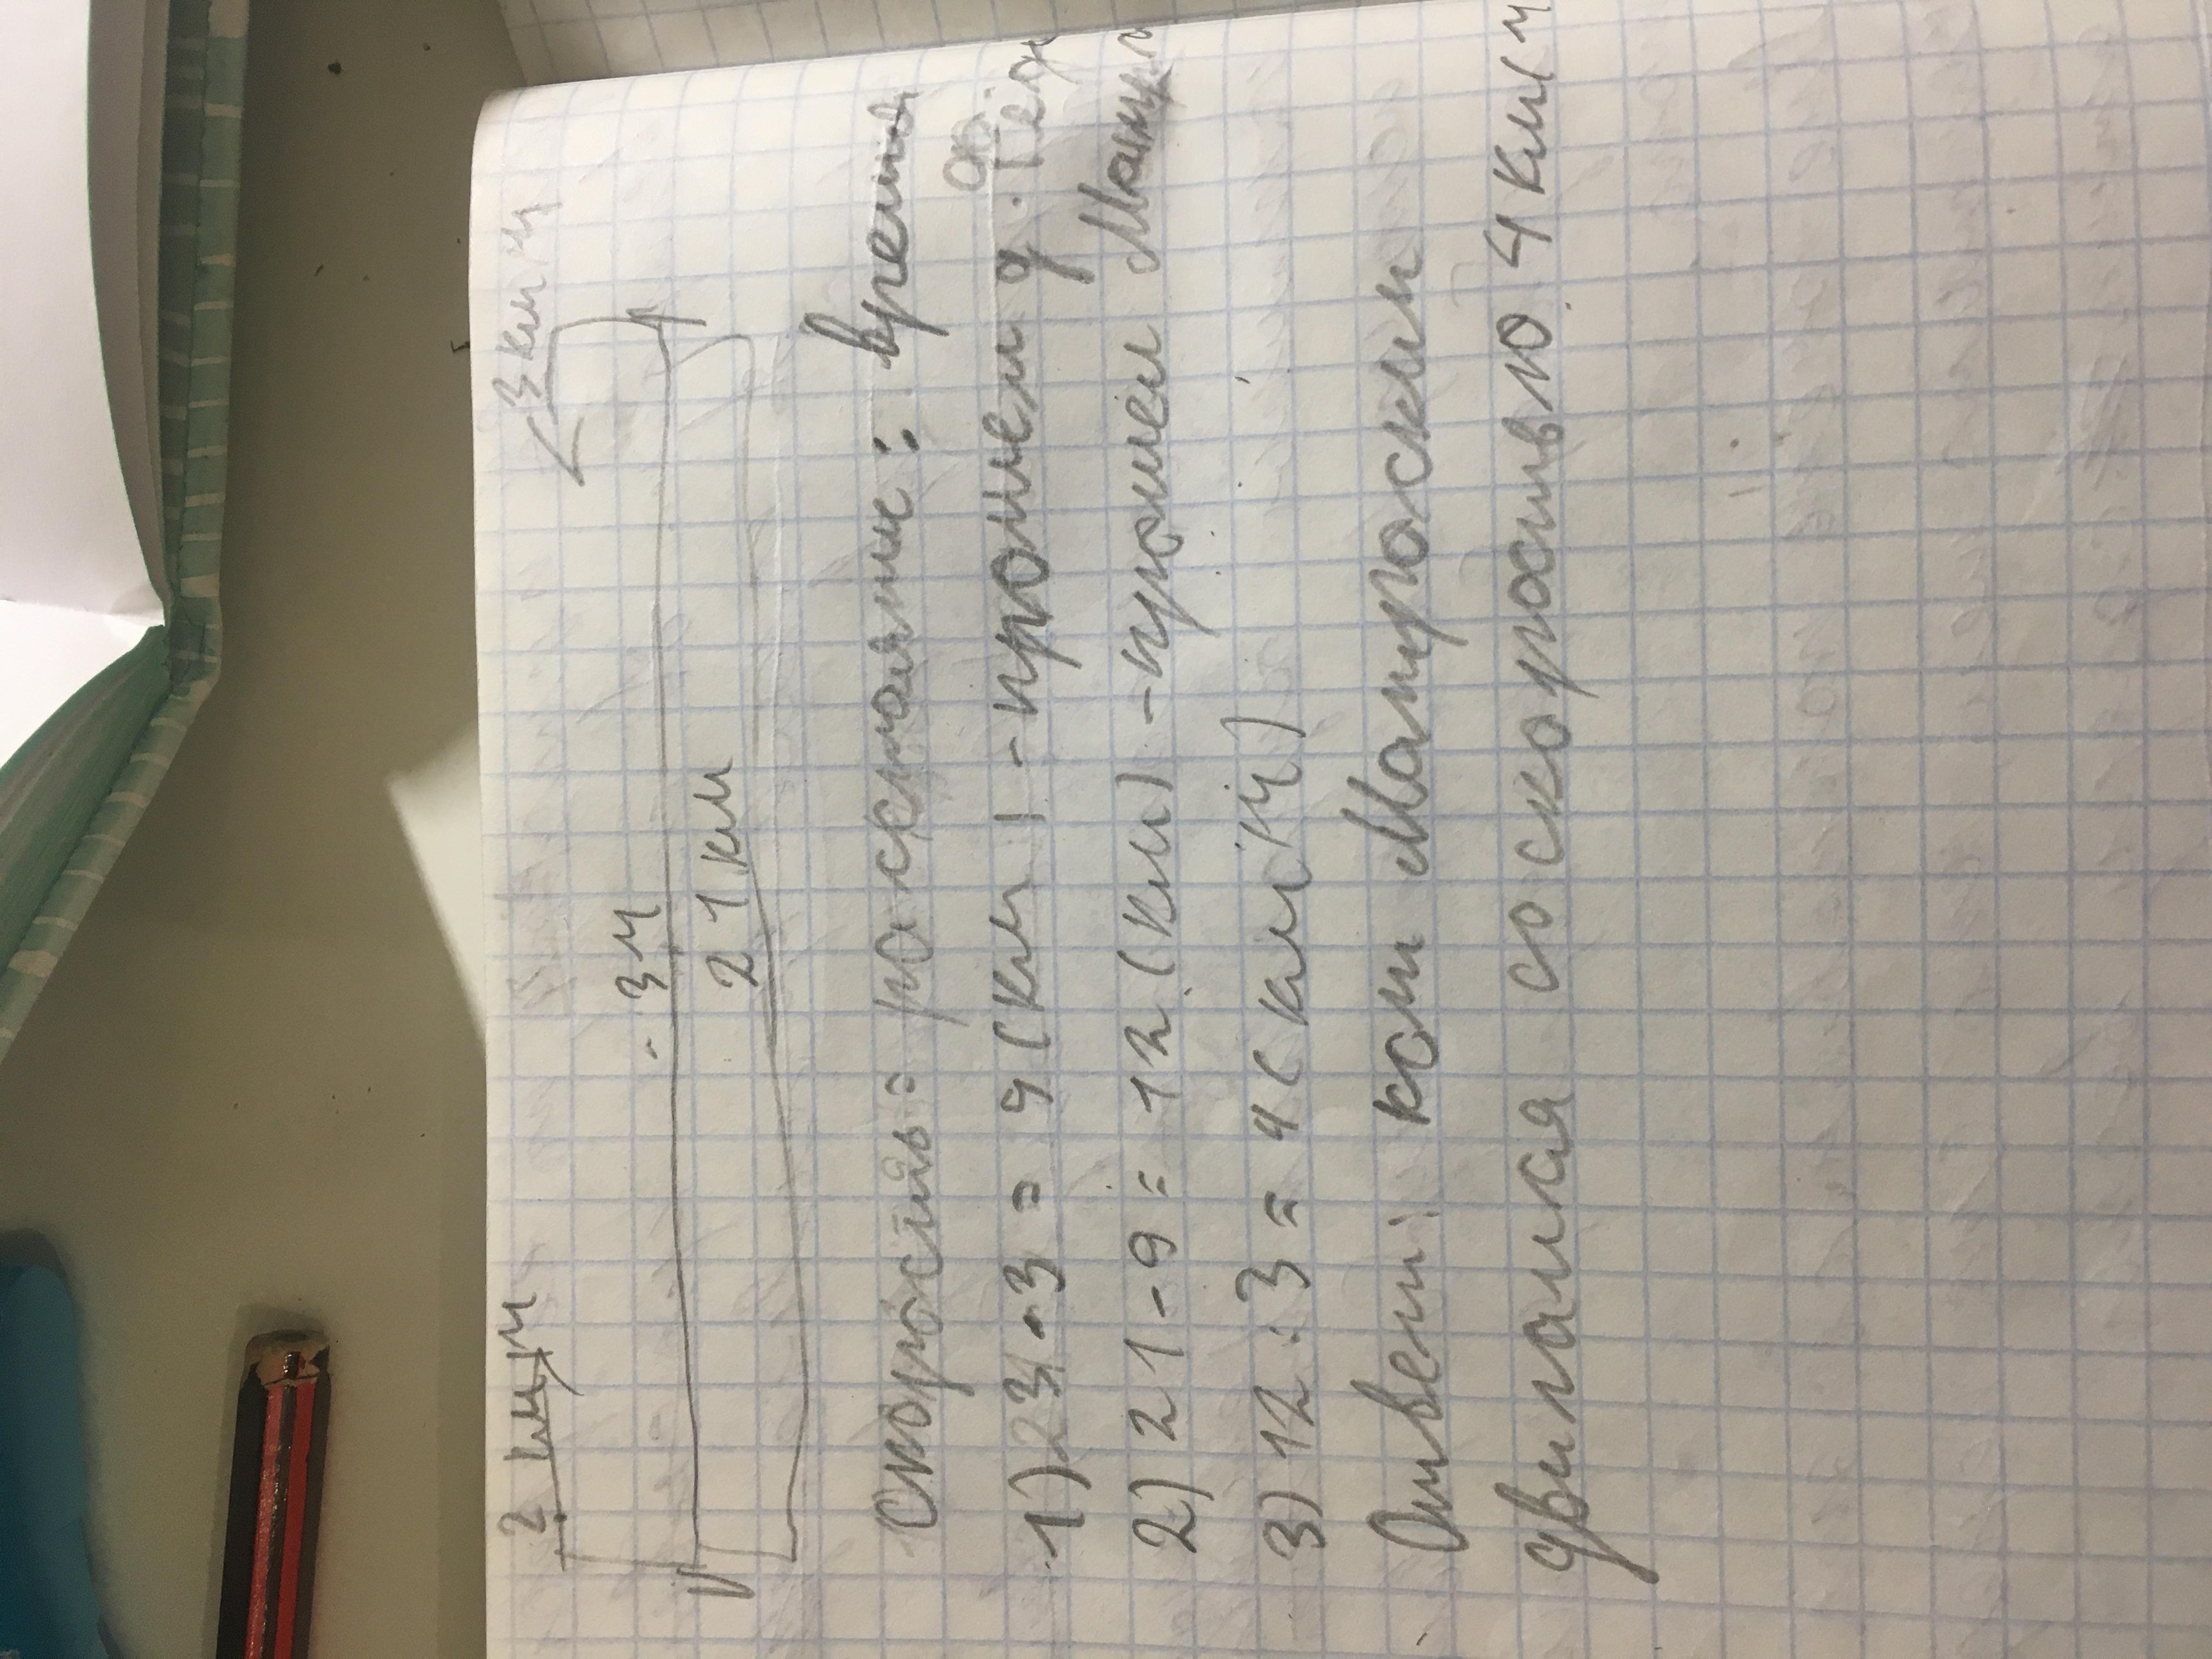 ? км/ч 3 км/ч
3ч
21 км
скорость = расстояние : время
1) 3 · 3 = 9 (км) - прошел д. Фёд
2) 21 - 9 = 12 (км) - прошел Мат
3) 12 : 3 = 4 (км/ч)
Ответ: кот Матроскин
двигался со скоростью 4 км/ч